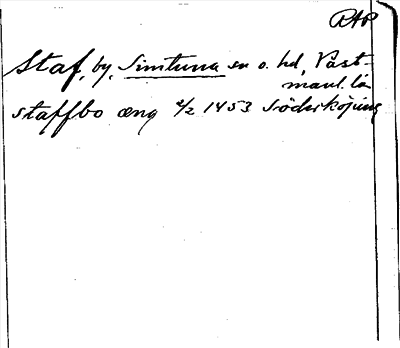 RAP
Staf, by, Simtuna sn o. hd, Väst-
manl. län
staffbo æng 4/2 1453 Söderköping